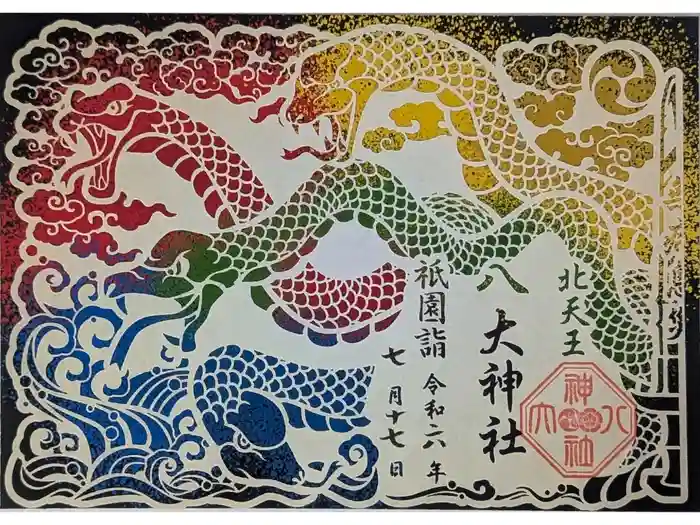 北天王
八大神社
祇園詣
令和六年
七月十七日
八大神社